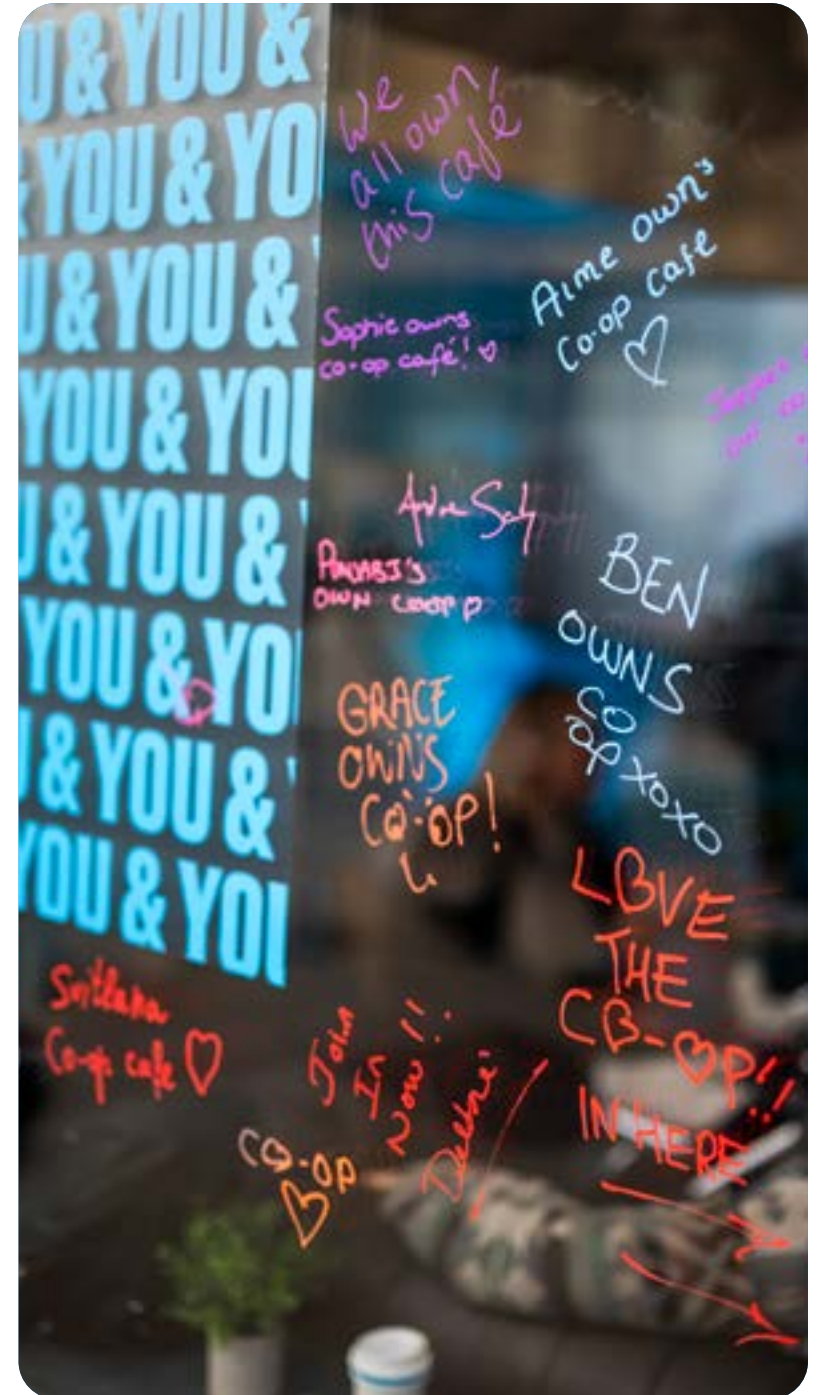 U & YOU &
& YOU & YO
U & YOU &
YOU & YOU
U & YOU &
YOU & YO
U & YOU &
YOU & YOU
We
all own
this café
Aime own's
Co-op Café
Sophie owns
co-op café!
PUNJABI'S
OWN COOP
BEN
OWNS
CO
OP XOXO
GRACE
OWNS
CO-OP!
LOVE
THE
CO-OP!!
IN HERE
Svitlana
Co-op cafe
Join
In
Now!!
Debbie
CO-OP